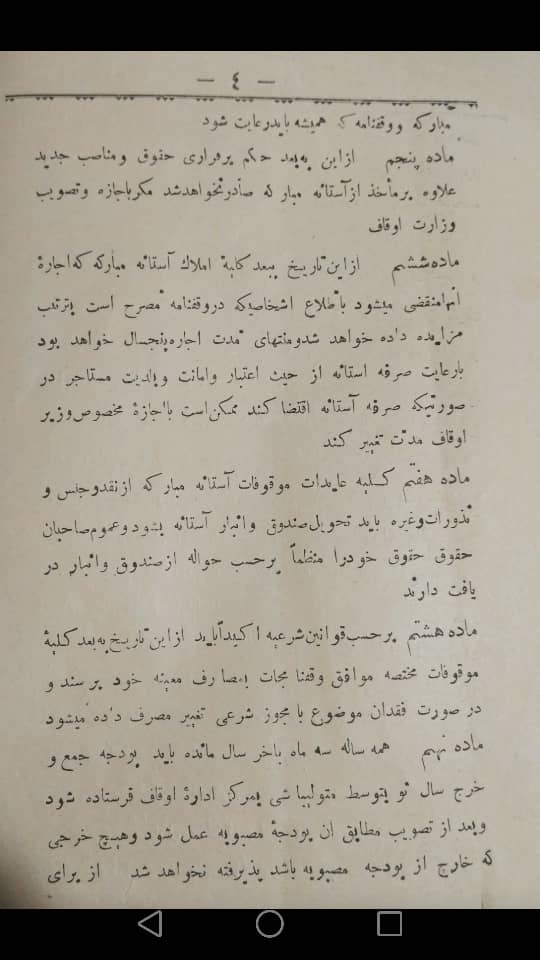 — ٤ —
مبارکه ووقفنامه که همیشه باید رعایت شود
ماده پنجم ازاین ببعد حکم برقراری حقوق ومناصب جدید
علاوه برمأخذ ازآستانه مبارکه صادرنخواهدشد مکرباجازه وتصویب
وزارت اوقاف
ماده ششم ازاین تاریخ ببعد کلیهٔ املاك آستانه مبارکه که اجارهٔ
آنهامنقضی میشود باطلاع اشخاصیکه دروقفنامه مصرح است بترتب
مزایده داده خواهد شدومنتهای مدت اجاره پنجسال خواهد بود
بارعایت صرفه استانه از حیث اعتبار وامانت و مستاجر در
صورتیکه صرفه آستانه اقتضا کند ممکن است بااجازهٔ مخصوص وزیر
اوقاف مدت تغییر کند
ماده هفتم کلیه عایدات موقوفات آستانه مبارکه ازنقدوجنس و
نذورات وغیره باید تحویل صندوق وانبار آستانه بشود وعموم صاحبان
حقوق حقوق خودرا منظماً برحسب حواله ازصندوق وانبار در
یافت دارند
ماده هشتم برحسب قوانین شرعیه اکیداًباید ازاین تاریخ به بعد کلیهٔ
موقوفات مختصه موافق وقفنا مجات بمصارف معینه خود برسند و
در صورت فقدان موضوع با مجوز شرعی تغییر مصرف داده میشود
ماده نهم همه ساله سه ماه باخر سال مانده باید بودجه جمع و
خرج سال نو بتوسط متولیباشی بمرکز ادارهٔ اوقاف فرستاده شود
وبعد از تصویب مطابق ان بودجهٔ مصوبه عمل شود وهیچ خرجی
که خارج از بودجه مصوبه باشد پذیرفته نخواهد شد از برای